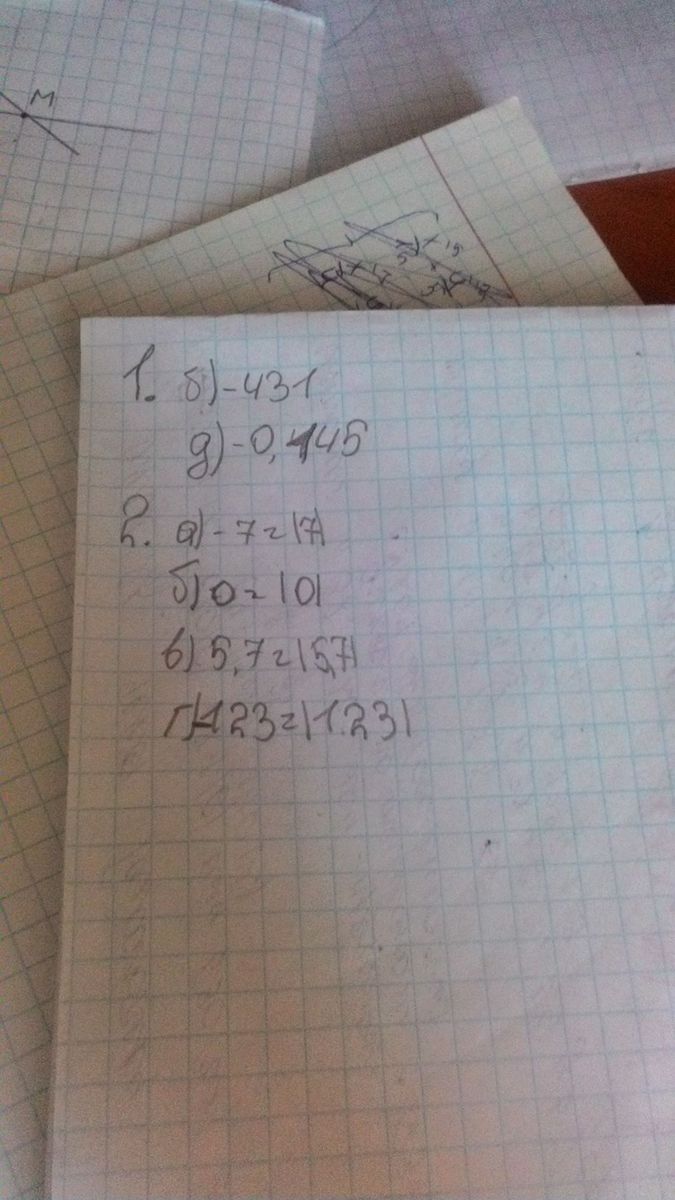 M
1. б) -431
д) -0,445
2. а) -7 = |7|
б) 0 = |0|
в) 5,7 = |5,7|
г) -123 = |1.23|